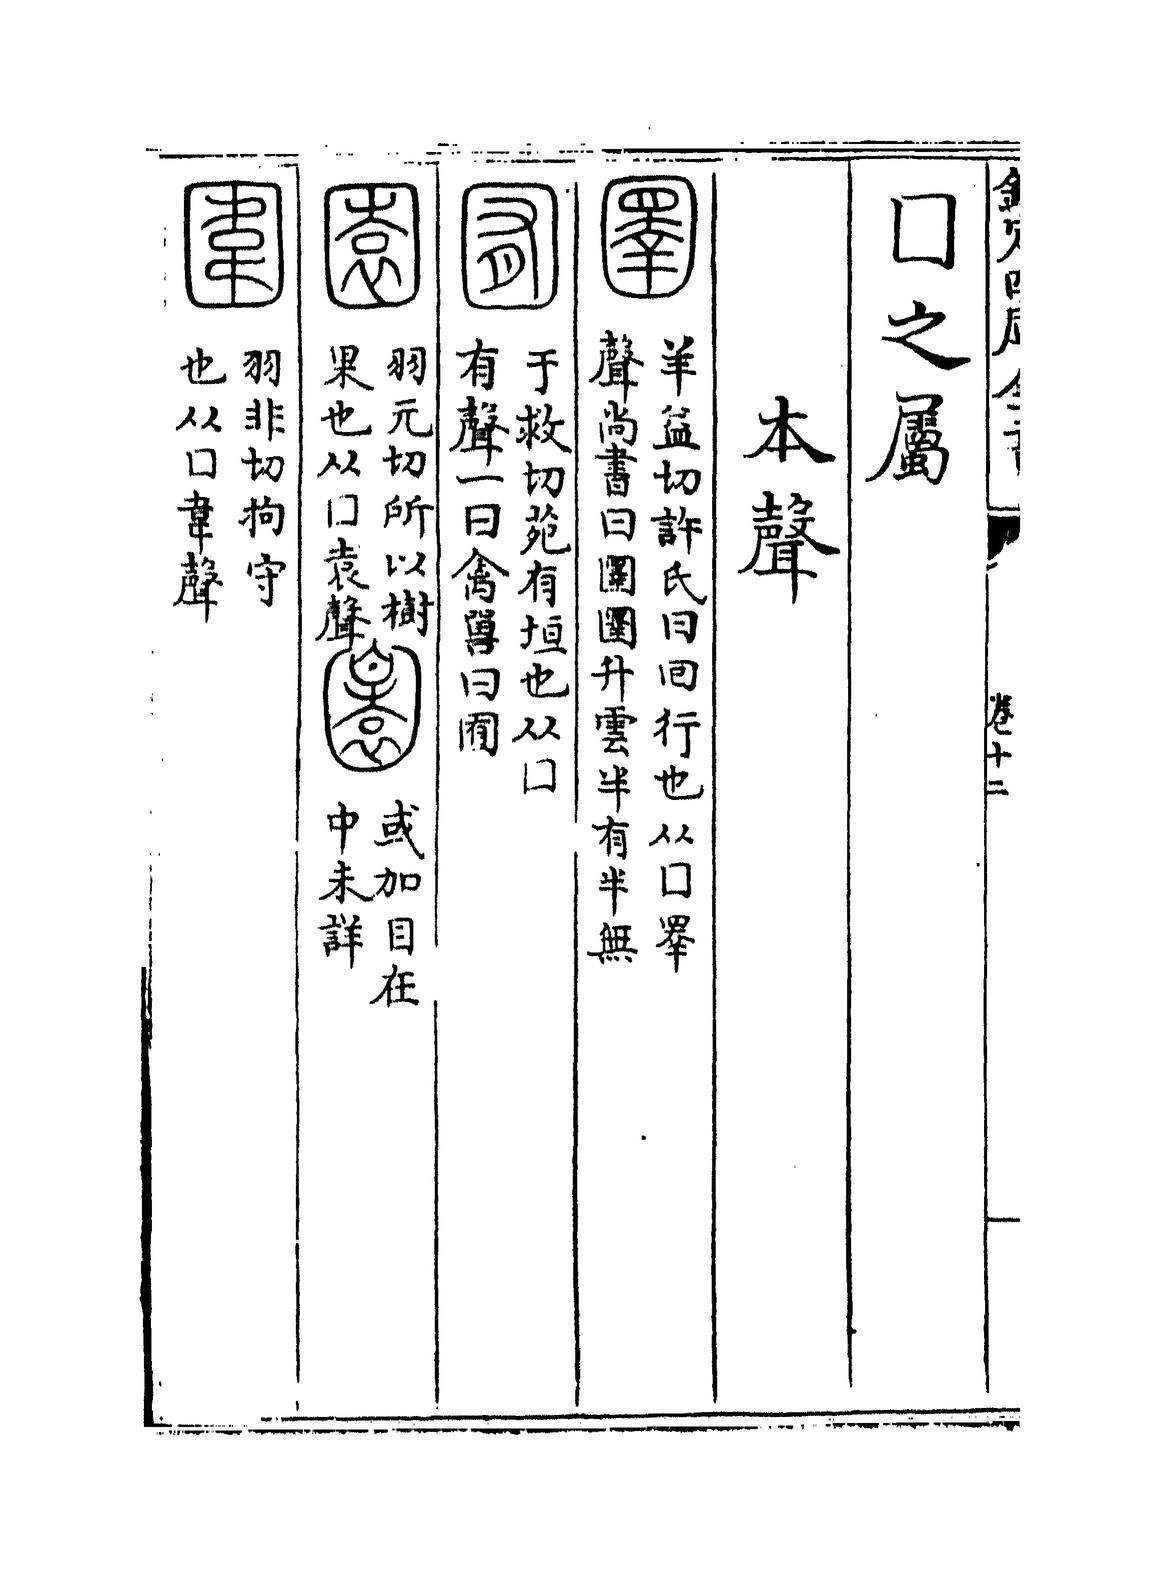 欽定四庫全書
卷十二
囗之屬
本聲
圛
羊益切許氏曰囘行也从囗睪
聲尚書曰圛圛升雲半有半無
囿
于救切苑有垣也从囗
有聲一曰禽嘼曰囿
園
羽元切所以樹
果也从囗袁聲
或加目在
中未詳
圍
羽非切拘守
也从囗韋聲